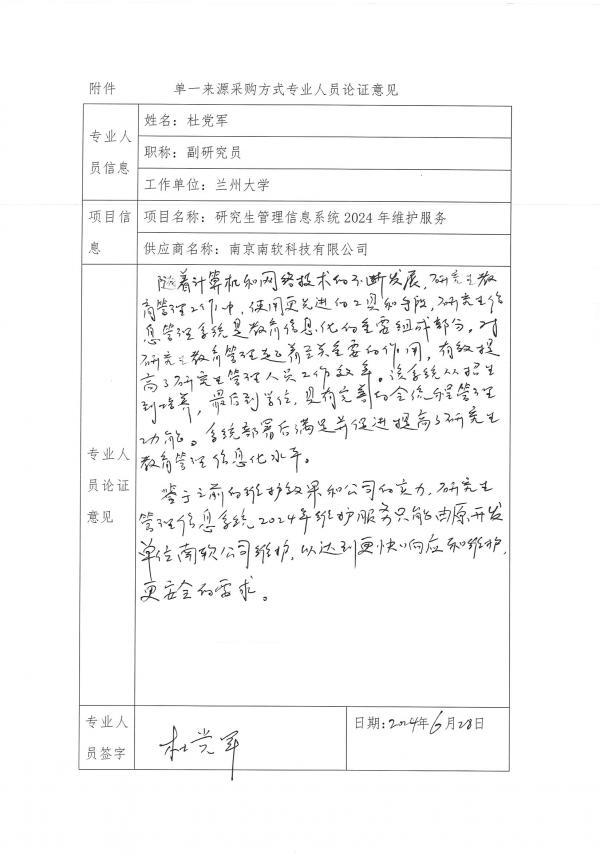 附件 单一来源采购方式专业人员论证意见
专业人员信息
姓名：杜党军
职称：副研究员
工作单位：兰州大学
项目信息
项目名称：研究生管理信息系统2024年维护服务
供应商名称：南京南软科技有限公司
专业人员论证意见
随着计算机和网络技术的不断发展，研究生教
育管理工作中，使用更先进的工具和手段，研究生信
息管理系统是教育信息化的重要组成部分。对
研究生教育管理起着至关重要的作用，有效提
高了研究生管理人员工作效率。该系统从招生
到培养，最后到学位，具有完善的全流程管理
功能。系统部署后满足并促进提高了研究生
教育管理信息化水平。
鉴于之前的维护效果和公司的实力，研究生
管理信息系统2024年维护服务只能由原开发
单位南软公司维护，以达到更快响应和维护，
更安全的需求。
专业人员签字
杜党军
日期：2024年6月28日